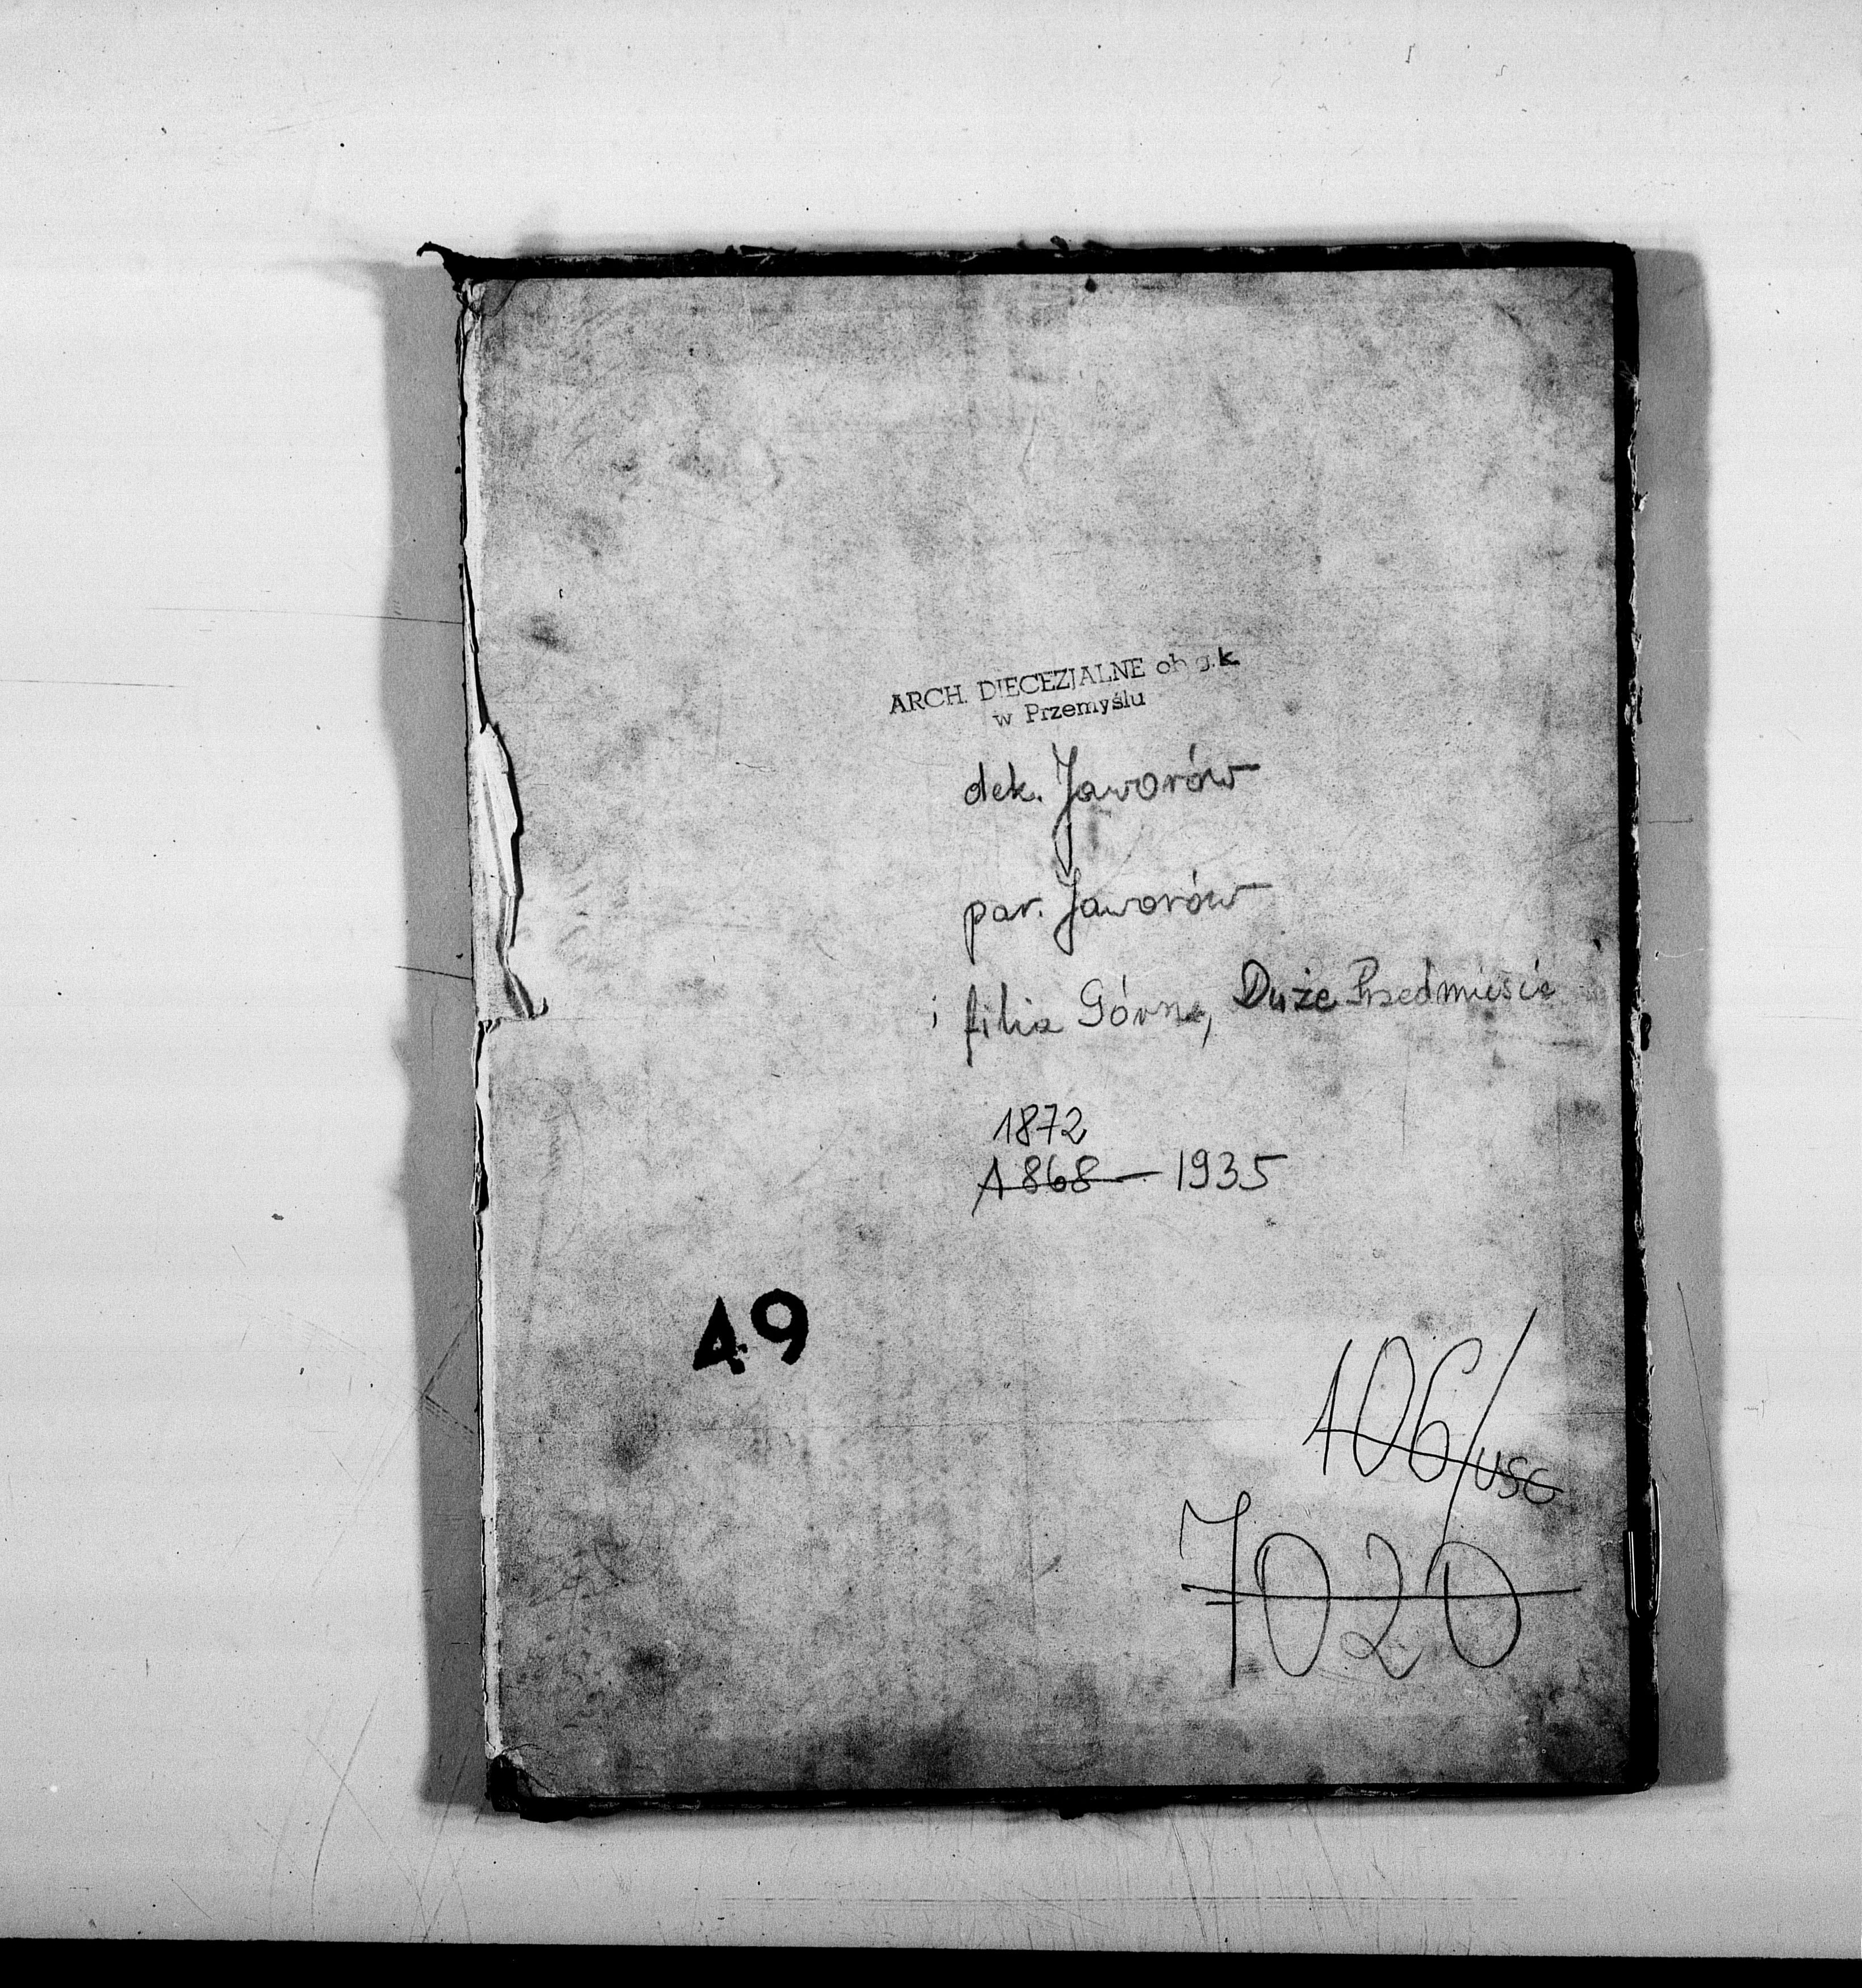 ARCH. DIECEZJALNE ob g.k.
w Przemyślu
dek. Jaworów
par. Jaworów
i filia Górna, Duże Przedmieście
1872
1868 — 1935
49
106/USC
7020